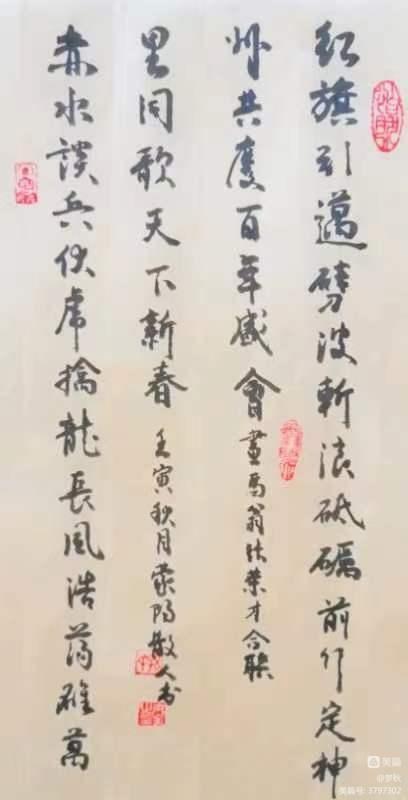 紅旗引邁劈波斬浪砥礪前行定神
州共度百年盛會
畫馬翁张荣才合联
赤水談兵伏虎擒龍長風浩蕩雄萬
里同歌天下新春
壬寅秋月荥阳散人书
美篇
@梦秋
美篇号: 3797302